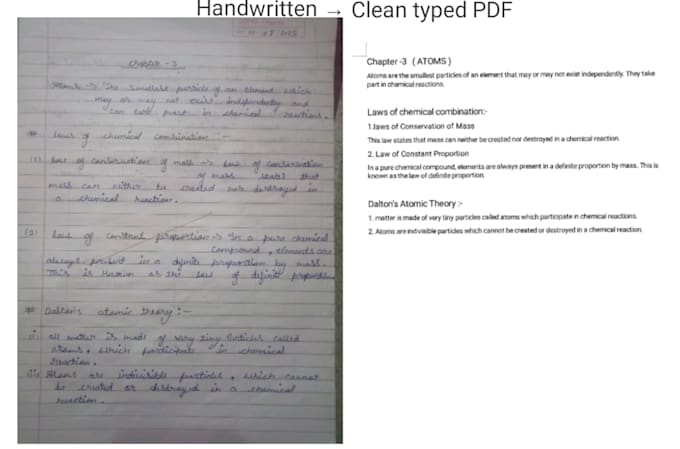 Handwritten → Clean typed PDF
Chapter - 3
Atoms → The smallest particle of an element which
may or may not exist independently and
can take part in chemical reactions.
# Laws of chemical combination :-
(1) Law of conservation of mass → Law of conservation
of mass states that
mass can neither be created nor destroyed in
a chemical reaction.
(2) Law of constant proportion → In a pure chemical
compound, elements are
always present in a definite proportion by mass.
This is known as the law of definite
# Dalton's atomic theory :-
all matter is made of very tiny particles called
atoms, which participate in chemical
reaction.
Atoms are indivisible particles, which cannot
be created or destroyed in a chemical
reaction.
Chapter -3 (ATOMS)
Atoms are the smallest particles of an element that may or may not exist independently. They take
part in chemical reactions.
Laws of chemical combination:-
1.laws of Conservation of Mass
This law states that mass can neither be created nor destroyed in a chemical reaction.
2. Law of Constant Proportion
In a pure chemical compound, elements are always present in a definite proportion by mass. This is
known as the law of definite proportion.
Dalton's Atomic Theory :-
1. matter is made of very tiny particles called atoms which participate in chemical reactions.
2. Atoms are indivisible particles which cannot be created or destroyed in a chemical reaction.